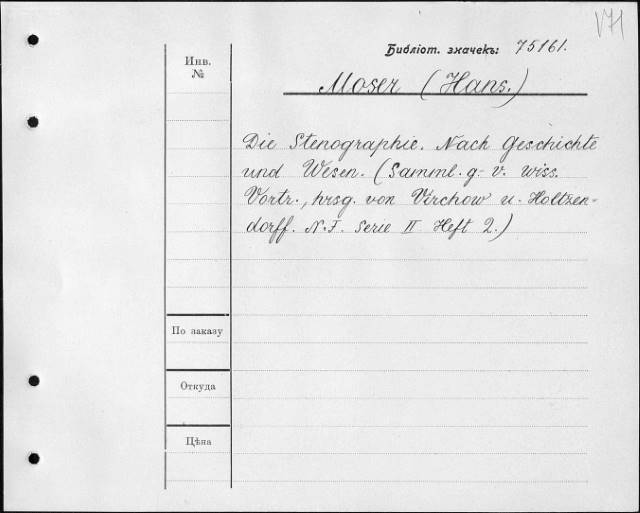 VII
Библіот. значекъ: 75161.
Инв.
№
Moser (Hans.)
Die Stenographie. Nach Geschichte
und Wesen. (Samml. g.- v. wiss.
Vortr., hrsg. von Virchow u. Holtzen-
dorff. N.F. Serie II Heft 2.)
По заказу
Откуда
Цѣна